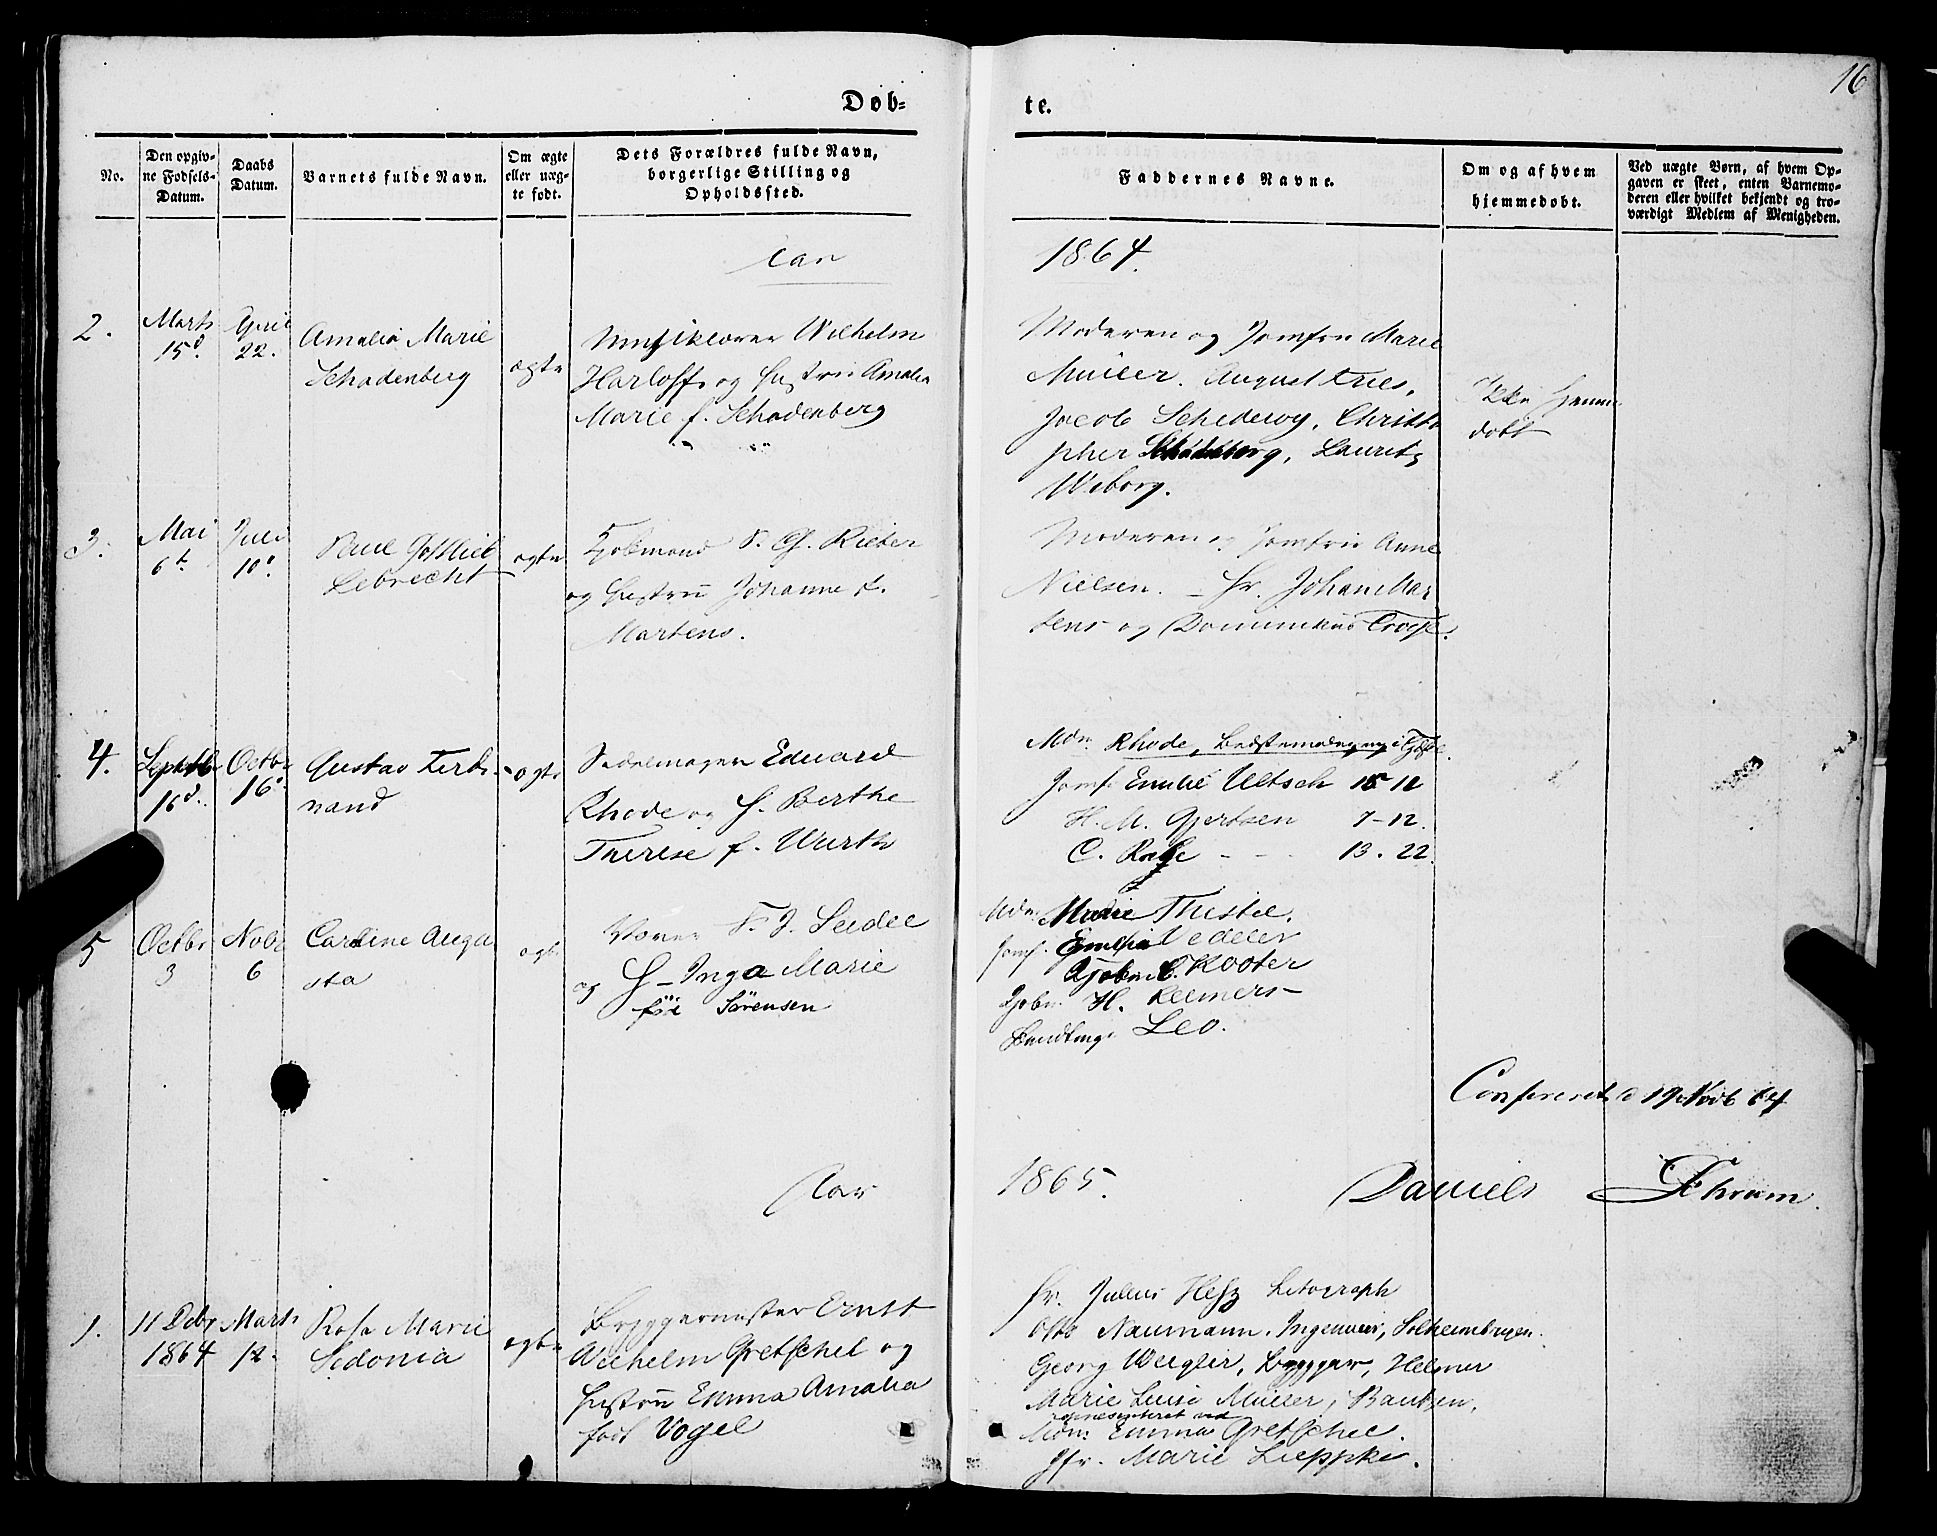 16
Døb- te.
No.
Den opgivne Fødsels-Datum.
Daabs Datum.
Barnets fulde Navn.
Om ægte eller uægte født.
Dets Forældres fulde Navn, borgerlige Stilling og Opholdssted.
Faddernes Navne.
Om og af hvem hjemmedøbt.
Ved uægte Børn, af hvem Opgaven er skeet, enten Barnemoderen eller hvilket bekjendt og troværdigt Medlem af Menigheden.
Aar 1864.
2.
Marts
15d.
April
22.
Amalia Marie
Schadenberg
ægte
Musiklærer Wilhelm
Harloff og Hustru Amalia
Marie f. Schadenberg
Moderen og Jomfru Marie
Müller. August Fries,
Jacob Schederoy, Christo
pher Schadenberg, Lauritz
Wiborg.
Ikke hjemme
døbt
3.
Mai
6t.
Juli
10.
Paul Gottlieb
Lebrecht
ægte
Kjøbmand F. G. Rieber
og Hustru Johanne f.
Martens.
Moderen og Jomfru Anne
Nielsen. – Hr. Johan Mar
tens og Dominikus
4.
Septbr
16d.
Octbr
16.
Gustav Ferdi-
nand
ægte
Sadelmager Eduard
Rhode og H. Berthe
Therese f. Wurth
Mdm. Rhode, Bedstemoder
Jomf. Emilie Ultsch
H. M. Gjertsen 7–12.
C. 13. 22.
5
Octbr
3
Nobr
6
Caroline Augu
sta
ægte
Væver F. J. Seidel
og H– Inga Marie
Sørensen
Mdm. Marie Thistel.
Jomf. Vedeler
Kjøbm. C. Kooter
Kjøbm. H. Reimers
Leo.
Confereret d 19 Novb 64
Daniels Schram
Aar 1865.
1.
11 Debr
1864
Marts
12.
Rosa Marie
Sidonia
ægte
Bryggermester Ernst
Wilhelm Gretschel og
Hustru Emma Amalia
født Vogel
Hr. Julius Hesz Litograph
Otto Naumann, Ingenieur, Solheimbruen.
Georg Weigler, Brygger, Helmer
Marie Luise Müller, Bautzen,
representeret ved
Mdm: Emma Gretschel.
Jfr. Marie Lieppke.